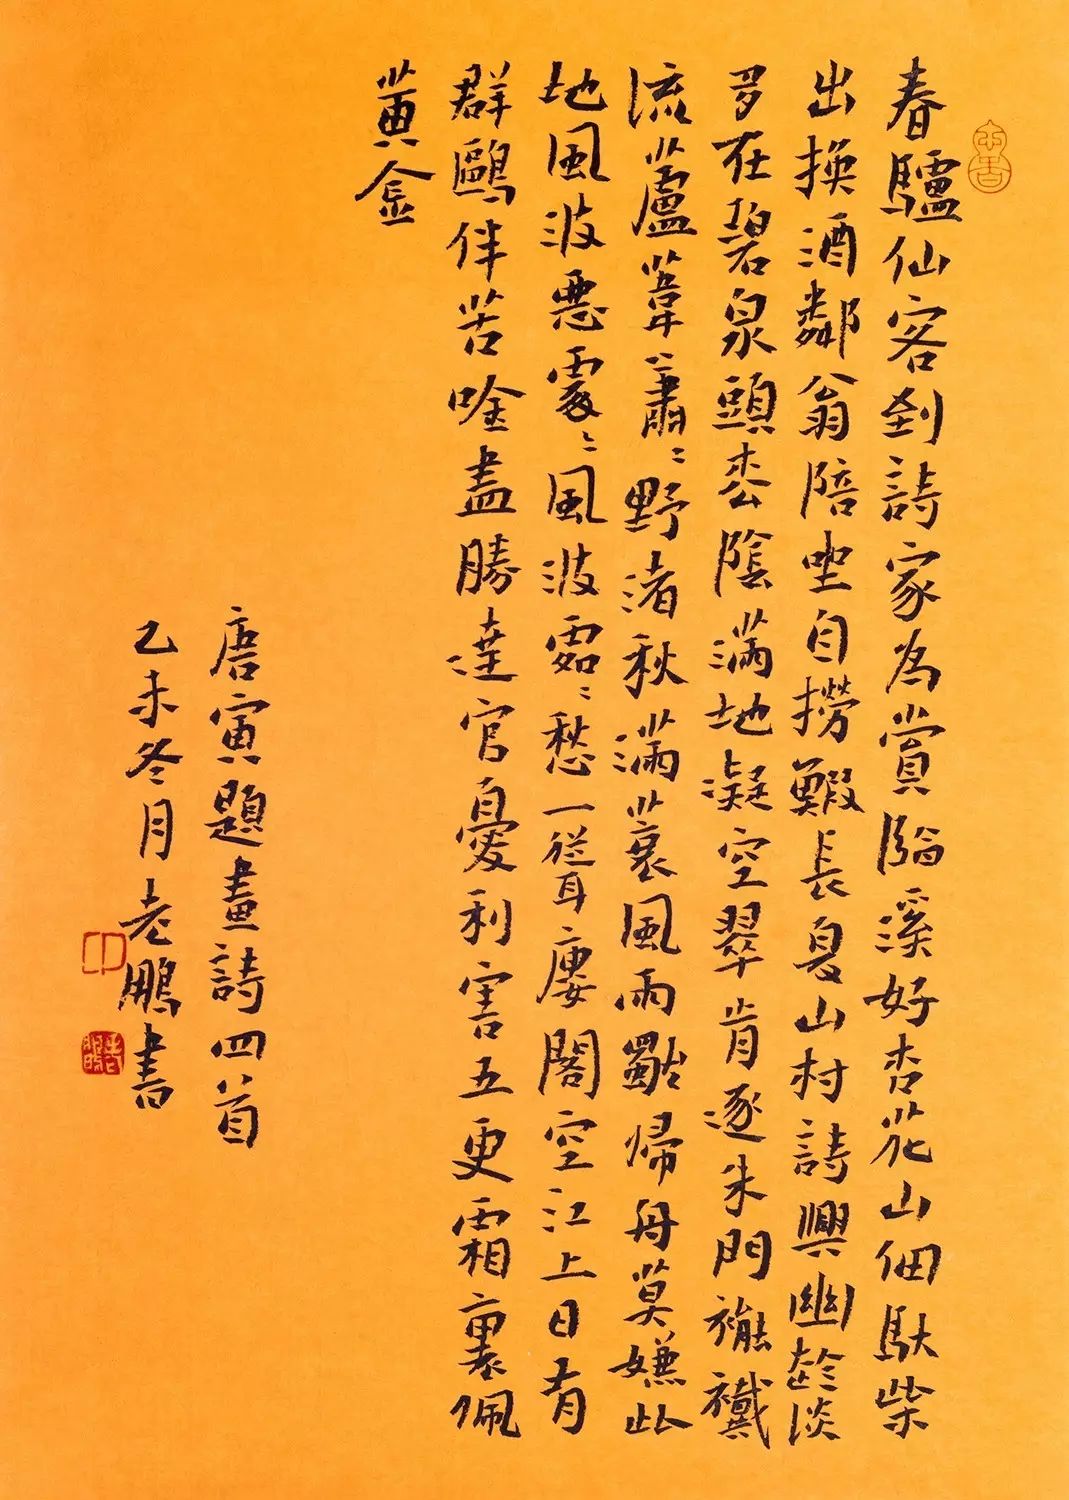 春驢仙客到詩家為賞臨溪好杏花山佃馱柴
出換酒鄰翁陪坐自撈鰕長夏山村詩興幽趁淡
多在碧泉頭枩陰滿地凝空翠肯逐朱門褦襶
流蘆葦蕭〻野渚秋滿蓑風雨獨歸舟莫嫌此
地風波惡處〻風波處〻愁一聳廔閣空江上日有
群鷗伴苦唫盡勝達官憂利害五更霜裏佩
黃金
唐寅題畫詩四首
乙未冬月老鵬書